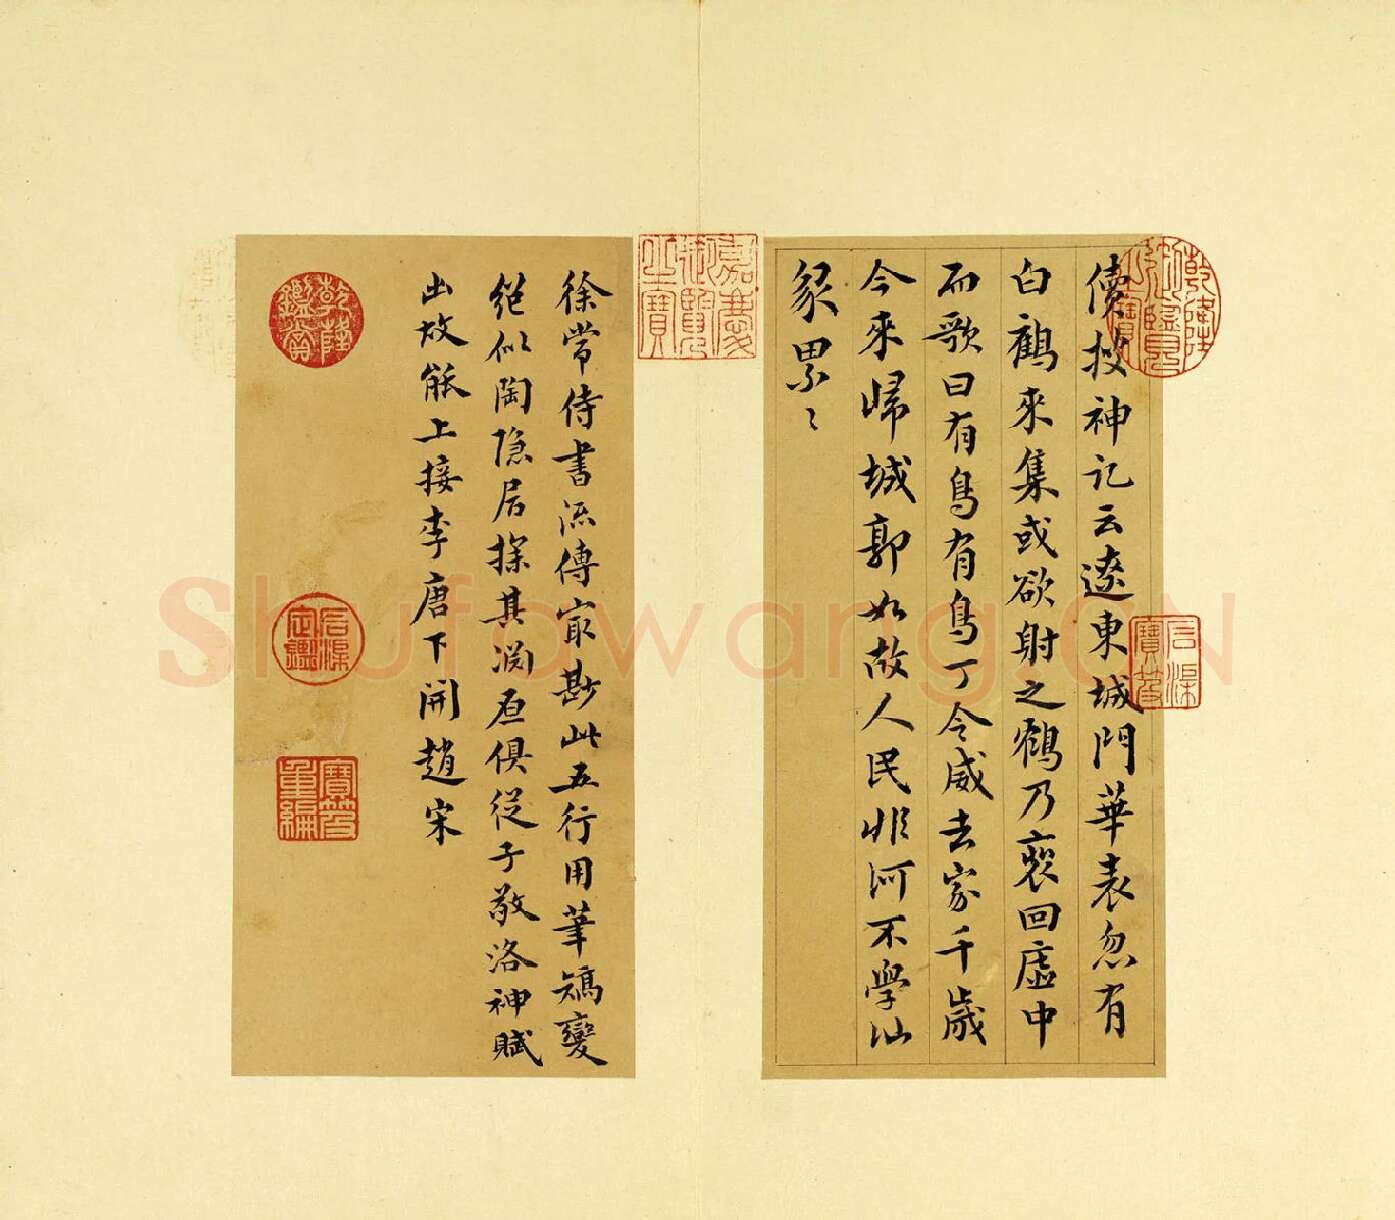 續搜神記云遼東城門華表忽有
白鶴來集或欲射之鶴乃裵回虛中
而歌曰有鳥有鳥丁令威去家千歲
今來歸城郭如故人民非何不學仙
冢累〻
徐常侍書流傳寂尠此五行用筆矯變
絕似陶隐居探其淵原俱從子敬洛神賦
出故能上接李唐下開趙宋
乾隆御覽之寶
石渠寶笈
嘉慶御覽之寶
乾隆鑑賞
石渠定鑑
寶笈重編
Shufawang.CN